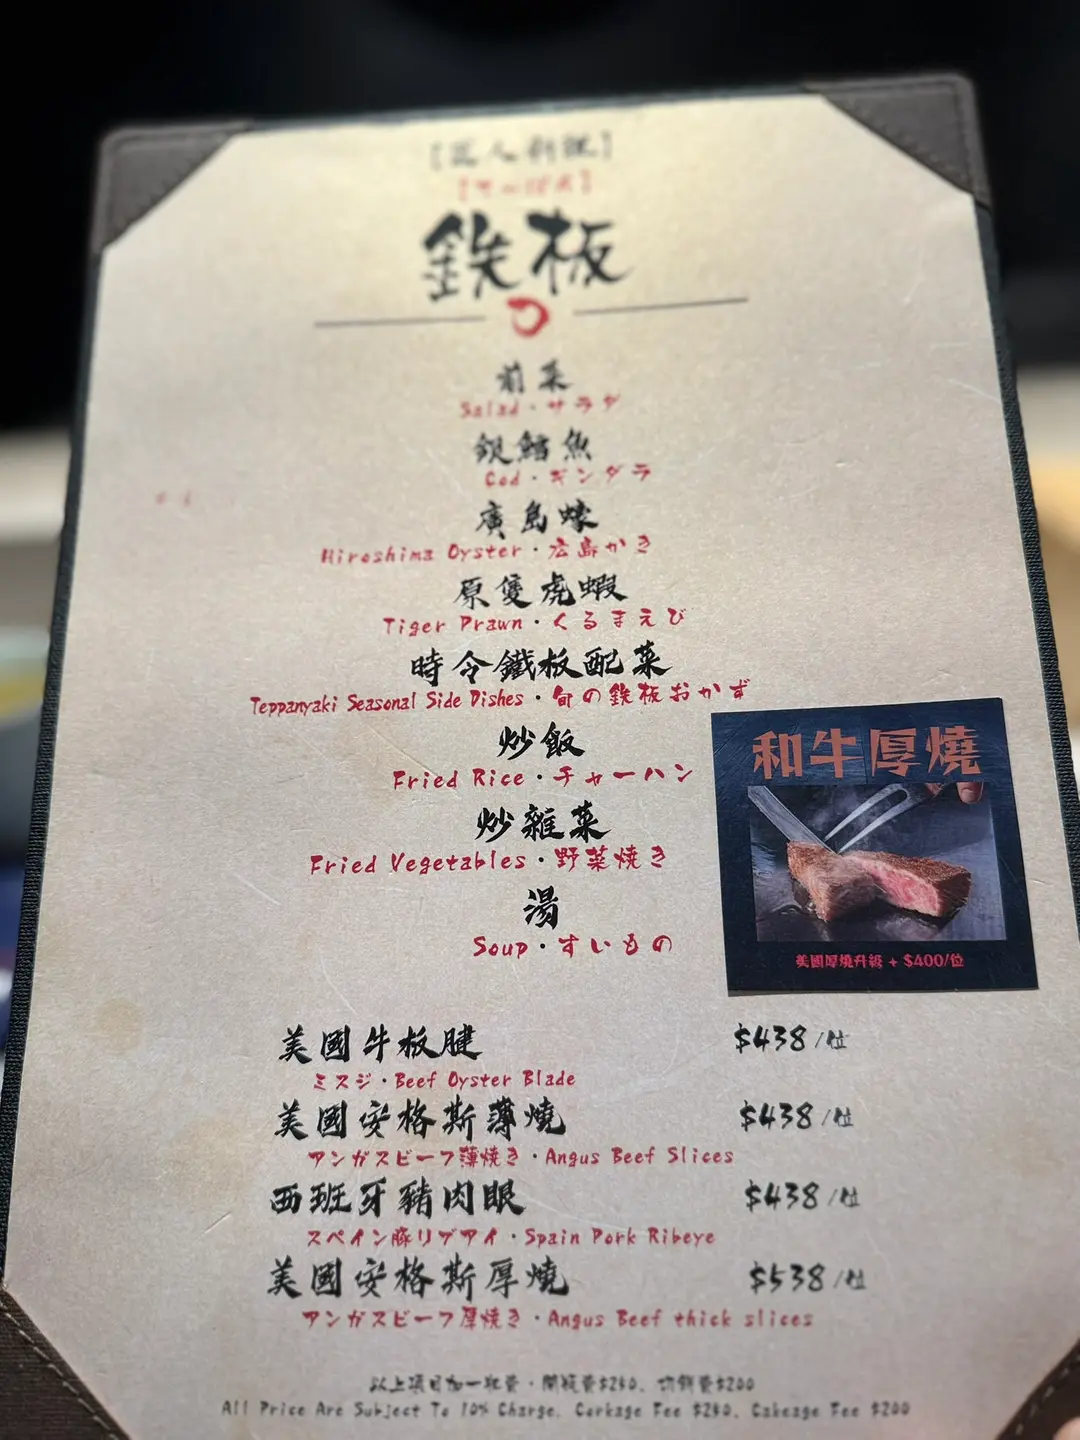 鉄板
前菜
Salad・サラダ
銀鱈魚
Cod・ギンダラ
廣島蠔
Hiroshima Oyster・広島かき
原隻虎蝦
Tiger Prawn・くるまえび
時令鐵板配菜
Teppanyaki Seasonal Side Dishes・旬の鉄板おかず
炒飯
Fried Rice・チャーハン
炒雜菜
Fried Vegetables・野菜焼き
湯
Soup・すいもの
和牛厚燒
美國厚燒升級 + $400/位
美國牛板腱 $438/位
ミスジ・Beef Oyster Blade
美國安格斯薄燒 $438/位
アンガスビーフ薄焼き・Angus Beef Slices
西班牙豬肉眼 $438/位
スペイン豚リブアイ・Spain Pork Ribeye
美國安格斯厚燒 $538/位
アンガスビーフ厚焼き・Angus Beef thick slices
以上項目加一收費・開瓶費$280、切餅費$200
All Price Are Subject To 10% Charge. Corkage Fee $280. Cakeage Fee $200